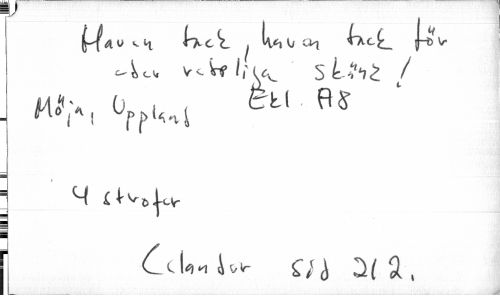 Haven tack, haven tack för
eder redeliga skänk!
Ekl. A8
Möja, Uppland
4 strofer
Celander sid 212.